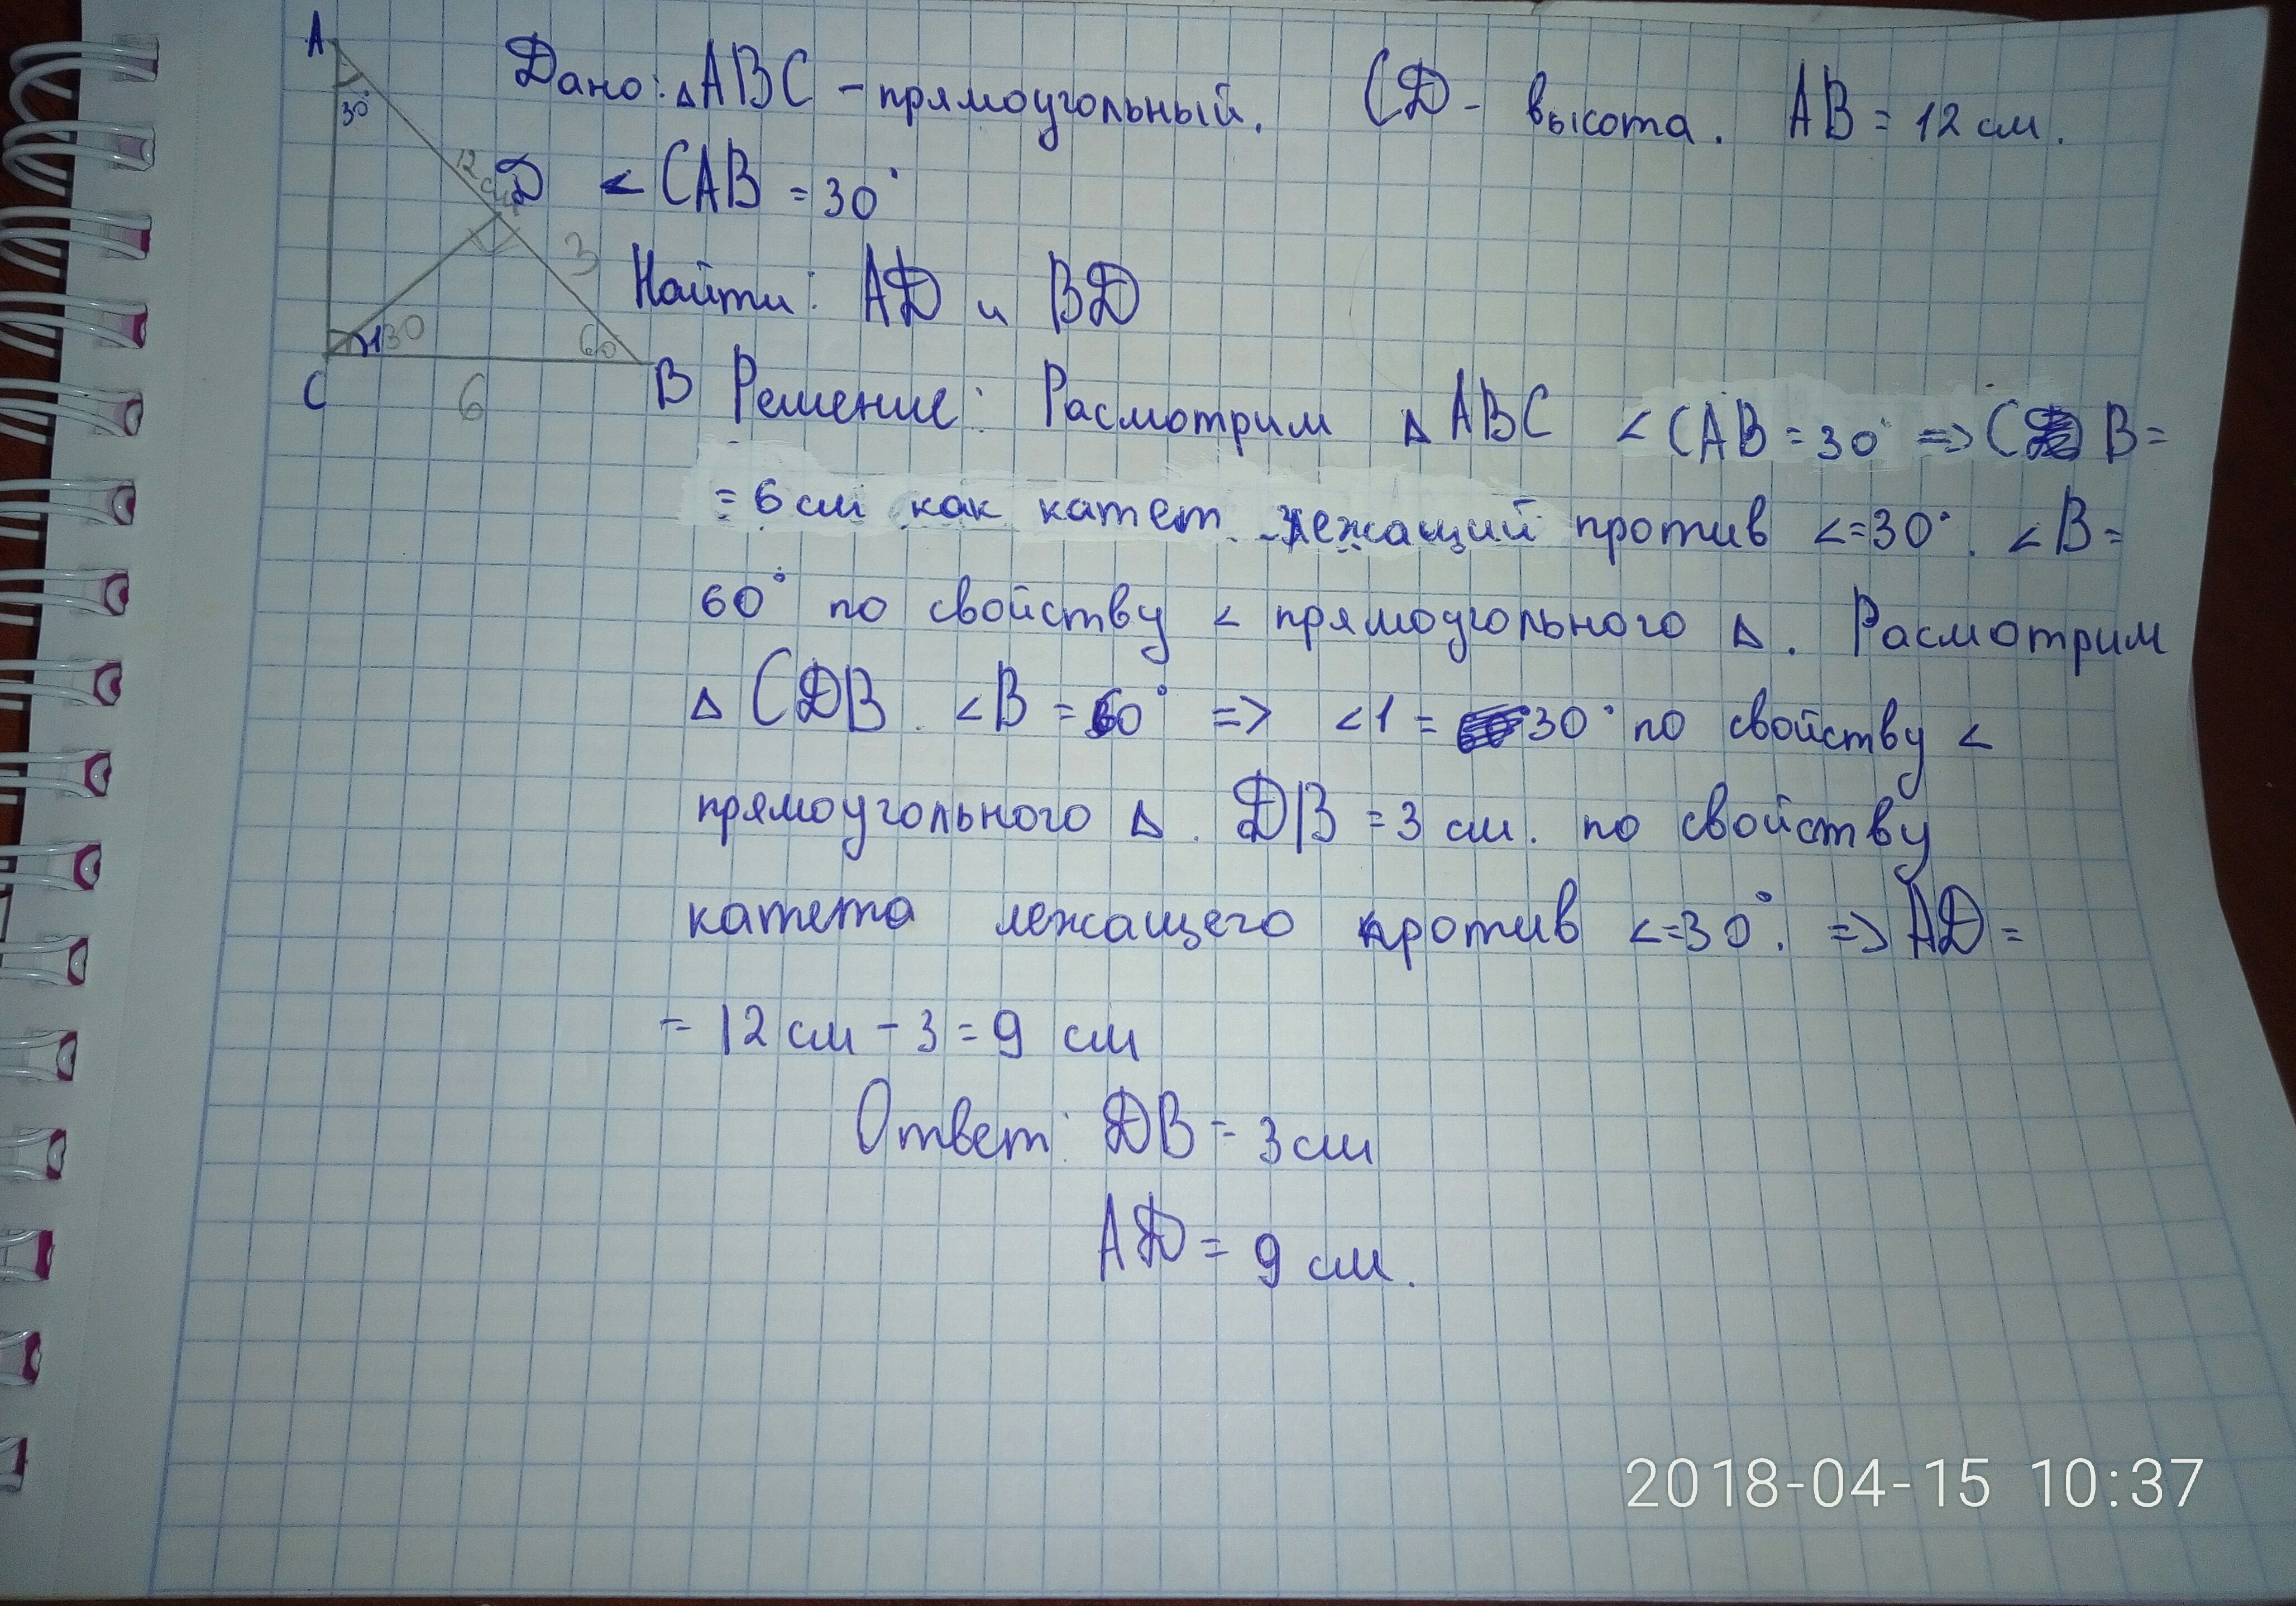 A
30°
12 см
Д
3
130
60
С
6
В
Дано: △ABC - прямоугольный. СД - высота. AB = 12 см.
< CAB = 30°
Найти: АД и ВД
Решение: Расмотрим △ ABC < CAB = 30° => С В =
= 6 см как катет лежащий против <=30°. <В =
60° по свойству < прямоугольного △. Расмотрим
△ СДВ. <В = 60° => <1 = 30° по свойству <
прямоугольного △. ДВ = 3 см. по свойству
катета лежащего против <=30°. => АД =
= 12 см - 3 = 9 см
Ответ: ДВ = 3 см
АД = 9 см.
2018-04-15 10:37